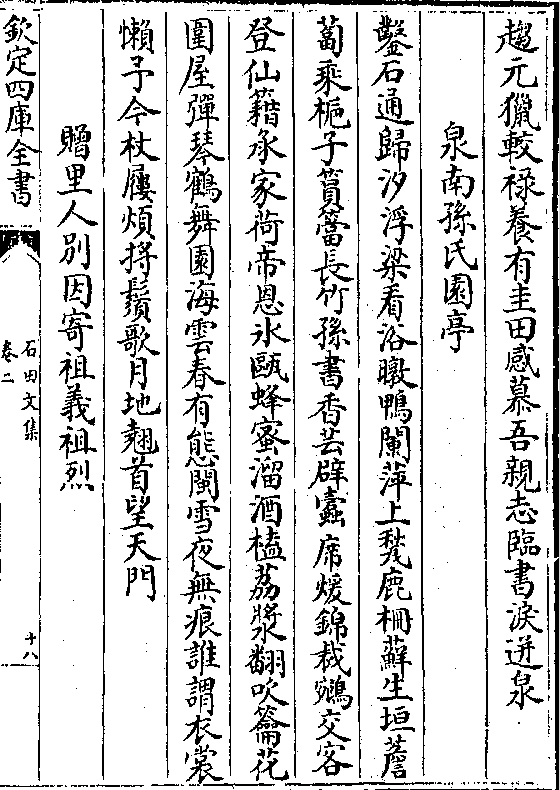 趨元獵較禄養有圭田感慕吾親志臨書淚迸泉
泉南孫氏園亭
鑿石通歸汐浮梁看浴暾鴨闌萍上甃鹿柵蘚生垣薝
蔔乘梔子篔簹長竹孫書香芸辟蠧席煖錦裁鵷交客
登仙籍承家荷帝恩氷甌蜂蜜溜酒榼荔漿翻吹籥花
圍屋彈琴鶴舞園海雲春有態閩雪夜無痕誰謂衣裳
懶予今杖屨煩捋鬚歌月地翹首望天門
贈里人別因寄祖義祖烈
欽定四庫全書
石田文集
卷二
十八